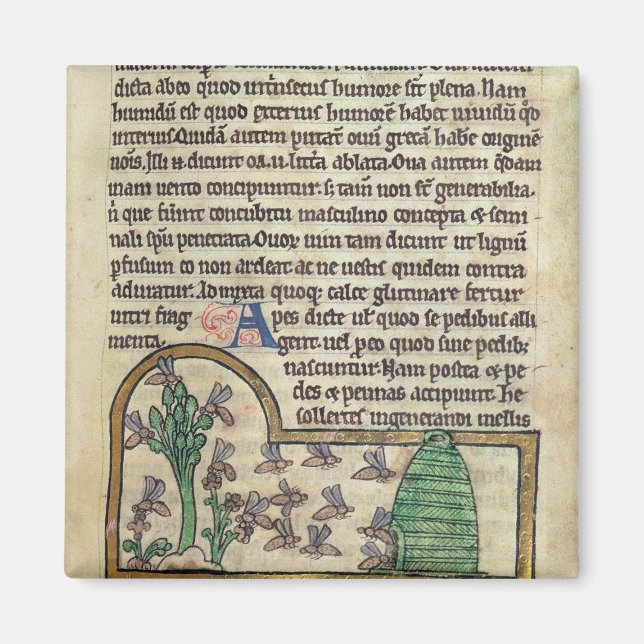 dicta abeo quod intrinsecus humore sit plena. Nam
humidū est quod exterius humorē habet uiuidū qd
interius. Quidā autem putāt ouū grecā habē originē
nōis. Illi n̄ dicunt oa .u. littā ablata. Oua autem q̄dam
inani uento concipiuntur. s; tam̄ non st̄ generabilia.
n̄ que fūint concubitu masculino concepta & semi
nali spū penetrata. Ouoꝝ uim tam dicunt ut lignū
pfusum eo non ardeat ac ne uestis quidem contra
aduratur. Admixta quoq; calce glutinare fertur
uitri frag
menta.
Apes dicte uł quod se pedibus alli
gent. uel peo quod sine pedib;
nascuntur. Nam postea & pe
des & pennas accipiunt. he
sollertes ingenerandi mellis